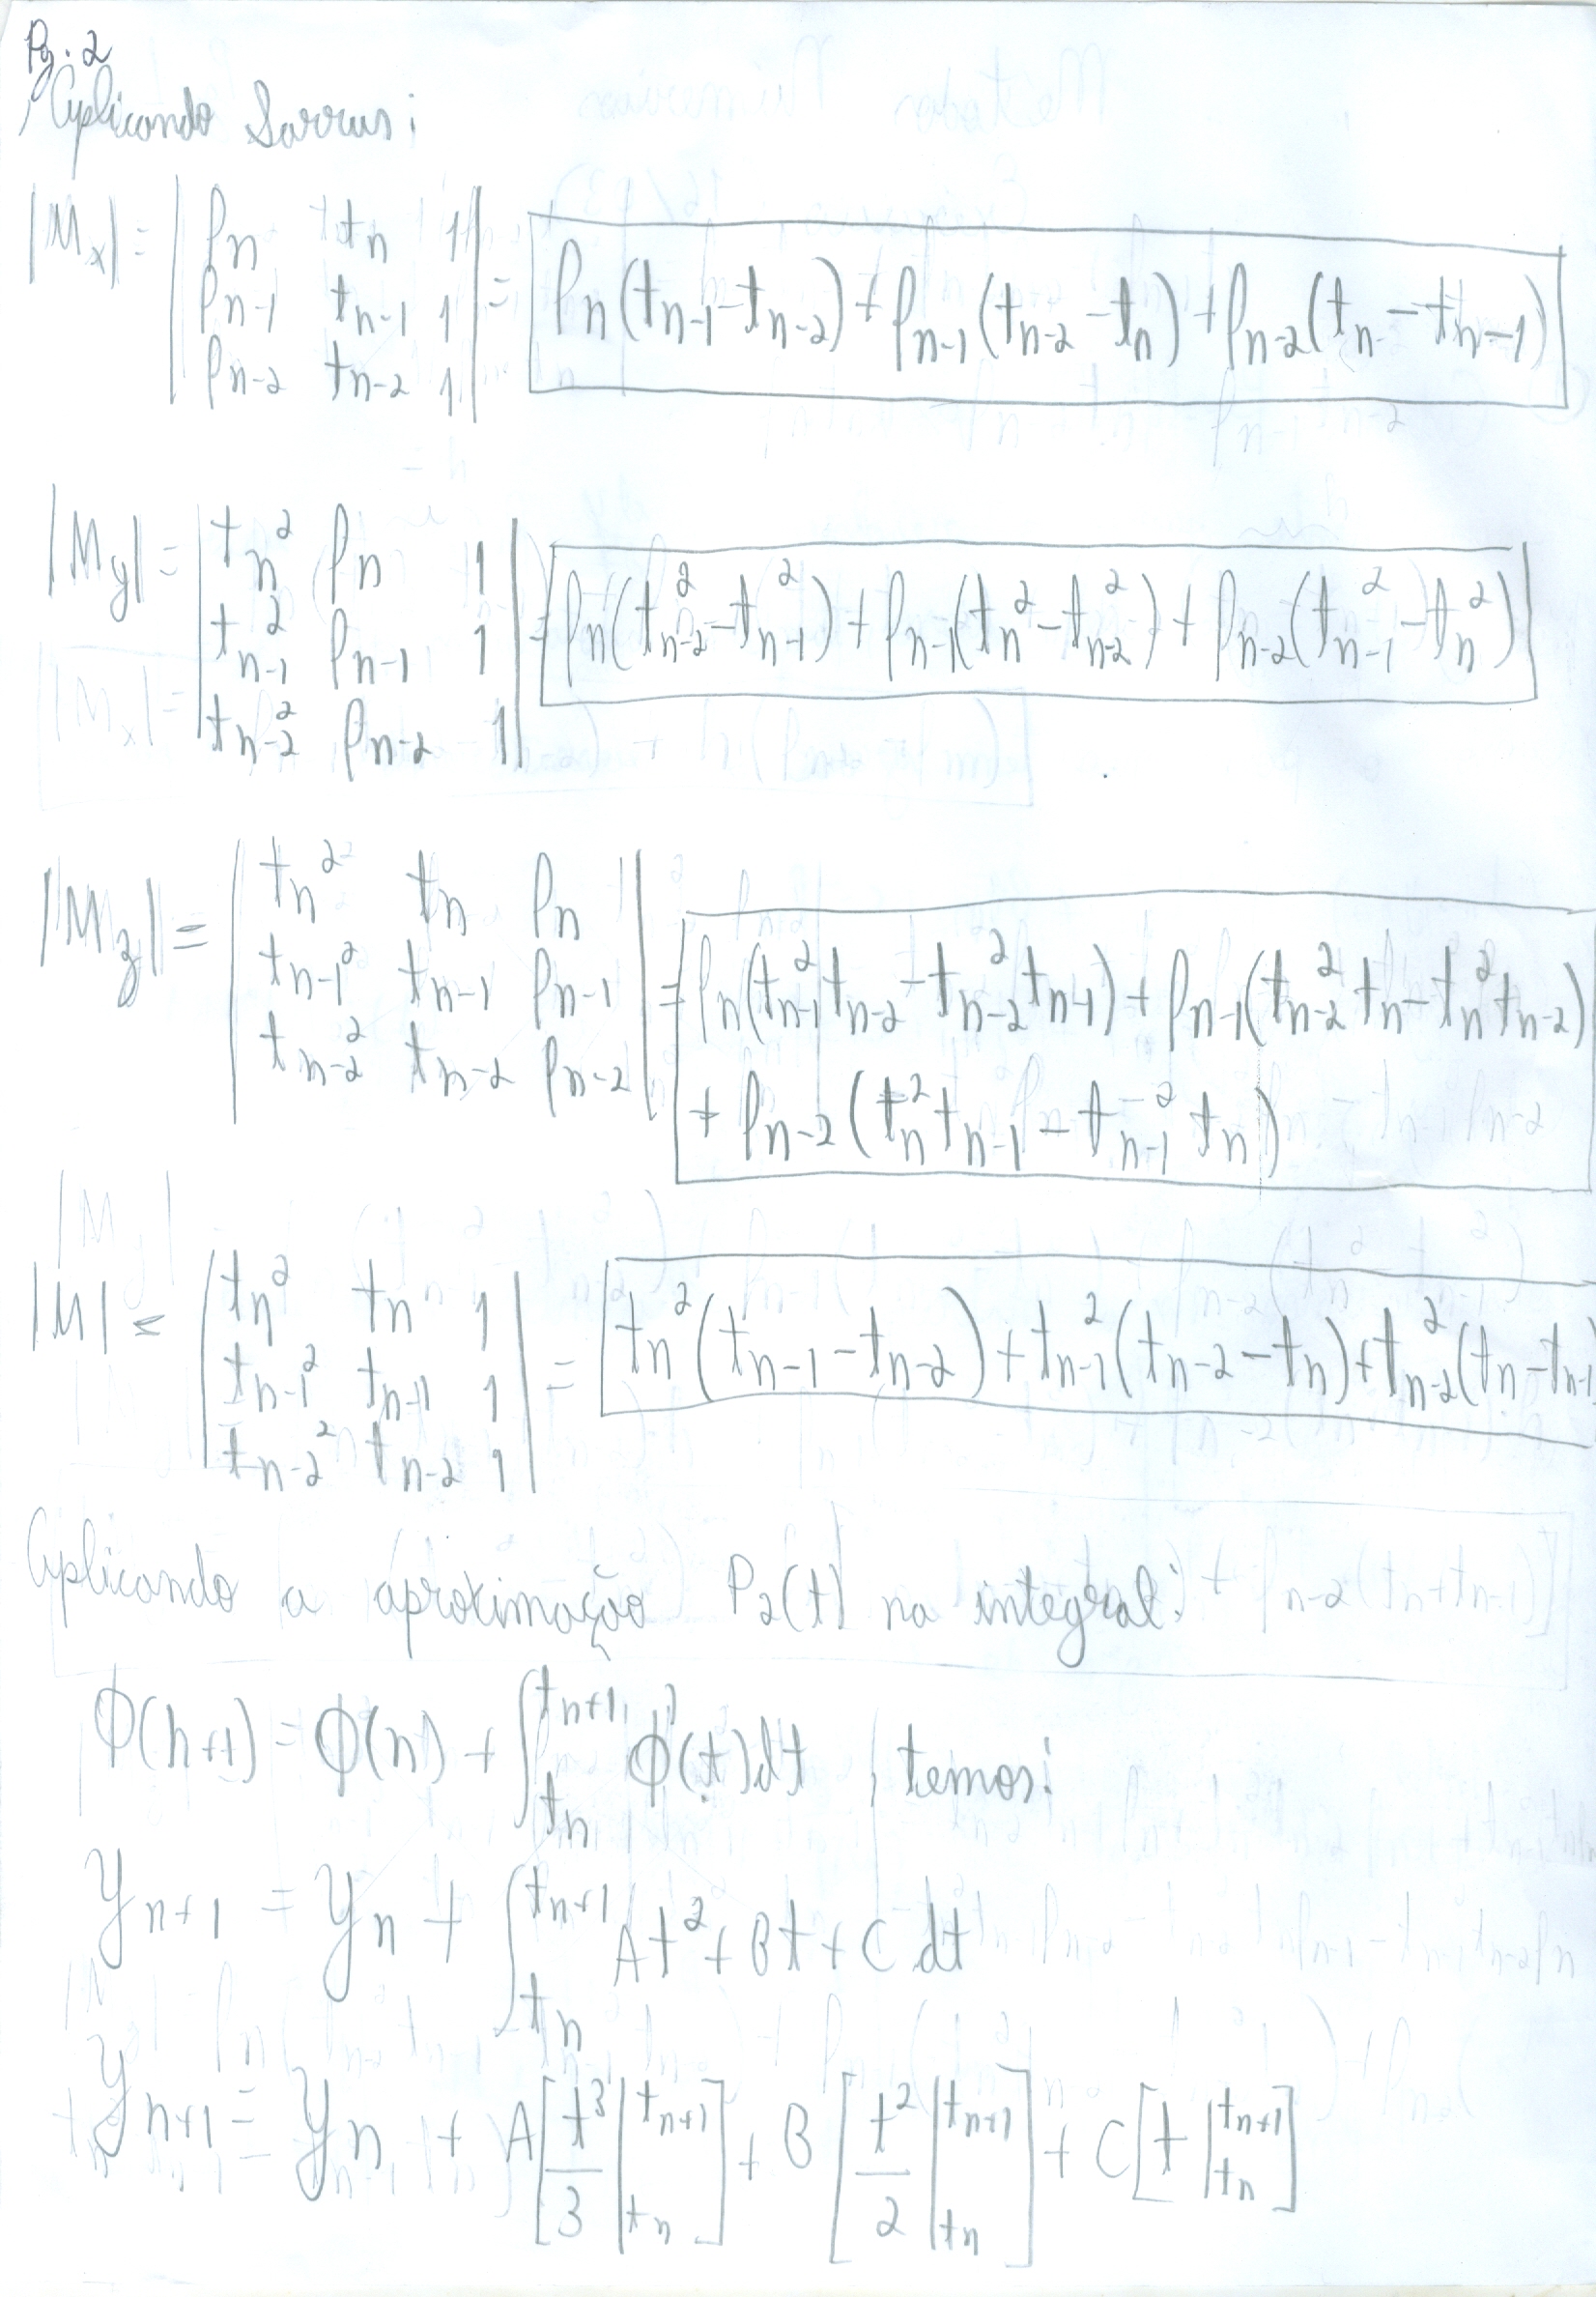 Pg. 2
Aplicando Sarrus:
|Mx| = | fn tn 1 | = fn(tn-1 - tn-2) + fn-1(tn-2 - tn) + fn-2(tn - tn-1)
fn-1 tn-1 1
fn-2 tn-2 1
|My| = | tn² fn 1 | = fn(tn-2² - tn-1²) + fn-1(tn² - tn-2²) + fn-2(tn-1² - tn²)
tn-1² fn-1 1
tn-2² fn-2 1
|Mz| = | tn² tn fn | = fn(tn-1² tn-2 - tn-2² tn-1) + fn-1(tn-2² tn - tn² tn-2)
tn-1² tn-1 fn-1
tn-2² tn-2 fn-2
+ fn-2(tn² tn-1 - tn-1² tn)
|M| = | tn² tn 1 | = tn²(tn-1 - tn-2) + tn-1²(tn-2 - tn) + tn-2²(tn - tn-1
tn-1² tn-1 1
tn-2² tn-2 1
Aplicando a aproximação P2(t) na integral:
ϕ(n+1) = ϕ(n) + ∫tn^tn+1 ϕ'(t)dt , temos:
yn+1 = yn + ∫tn^tn+1 At² + Bt + C dt
yn+1 = yn + A[t³/3 |tn^tn+1] + B[t²/2 |tn^tn+1] + C[t |tn^tn+1]